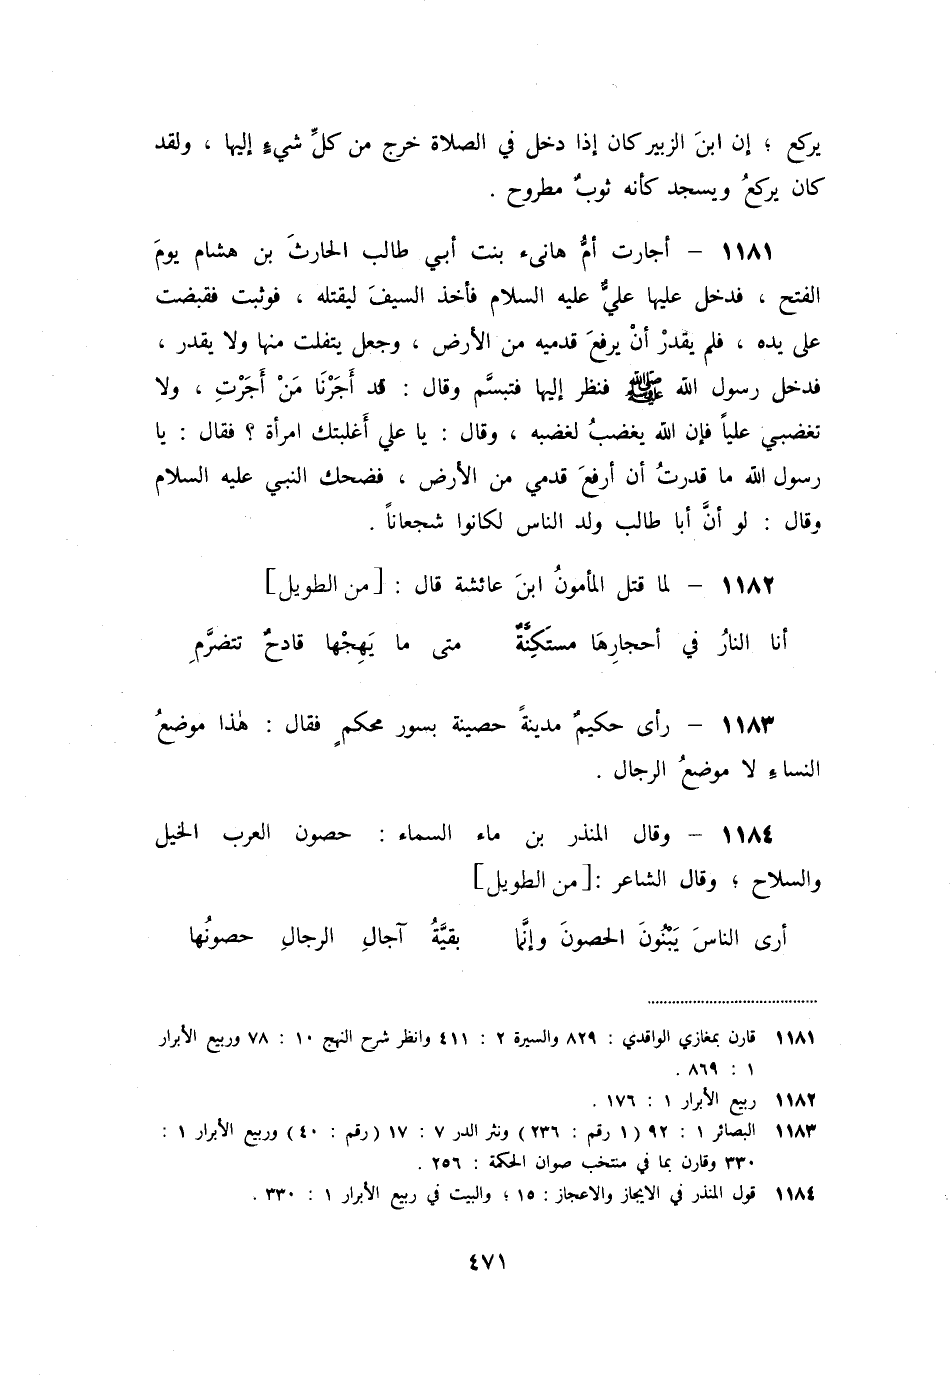 يركع ؛ إن ابنَ الزبير كان إذا دخل في الصلاة خرج من كلِّ شيءٍ إليها ، ولقد
كان يركعُ ويسجد كأنه ثوبٌ مطروح .
١١٨١ – أجارت أمُّ هانىء بنت أبي طالب الحارثَ بن هشام يومَ
الفتح ، فدخل عليها عليٌّ عليه السلام فأخذ السيفَ ليقتله ، فوثبت فقبضت
على يده ، فلم يقدرْ أنْ يرفعَ قدميه من الأرض ، وجعل يتفلت منها ولا يقدر ،
فدخل رسول الله ﷺ فنظر إليها فتبسَّم وقال : قد أَجَرْنَا مَنْ أَجَرْتِ ، ولا
تغضبي علياً فإن الله يغضبُ لغضبه ، وقال : يا علي أَغلبتك امرأة ؟ فقال : يا
رسول الله ما قدرتُ أن أرفعَ قدمي من الأرض ، فضحك النبي عليه السلام
وقال : لو أنَّ أبا طالب ولد الناس لكانوا شجعاناً .
١١٨٢ – لما قتل المأمونُ ابنَ عائشة قال : [من الطويل]
أنا النارُ في أحجارِهَا مستَكِنَّةٌ متى ما يَهِجْها قادحٌ تتضرَّمِ
١١٨٣ – رأى حكيمٌ مدينةً حصينة بسور محكمٍ فقال : هٰذا موضعُ
النساءِ لا موضعُ الرجال .
١١٨٤ – وقال المنذر بن ماء السماء : حصون العرب الخيل
والسلاح ؛ وقال الشاعر : [من الطويل]
أرى الناسَ يَبْنُونَ الحصونَ وإنَّما بقيَّةُ آجالِ الرجالِ حصونُها
١١٨١ قارن بمغازي الواقدي : ٨٢٩ والسيرة ٢ : ٤١١ وانظر شرح النهج ١٠ : ٧٨ وربيع الأبرار
١ : ٨٦٩ .
١١٨٢ ربيع الأبرار ١ : ١٧٦ .
١١٨٣ البصائر ١ : ٩٢ (١ رقم : ٢٣٦) ونثر الدر ٧ : ١٧ (رقم : ٤٠) وربيع الأبرار ١ :
٣٣٠ وقارن بما في منتخب صوان الحكمة : ٢٥٦ .
١١٨٤ قول المنذر في الايجاز والاعجاز : ١٥ ؛ والبيت في ربيع الأبرار ١ : ٣٣٠ .
٤٧١